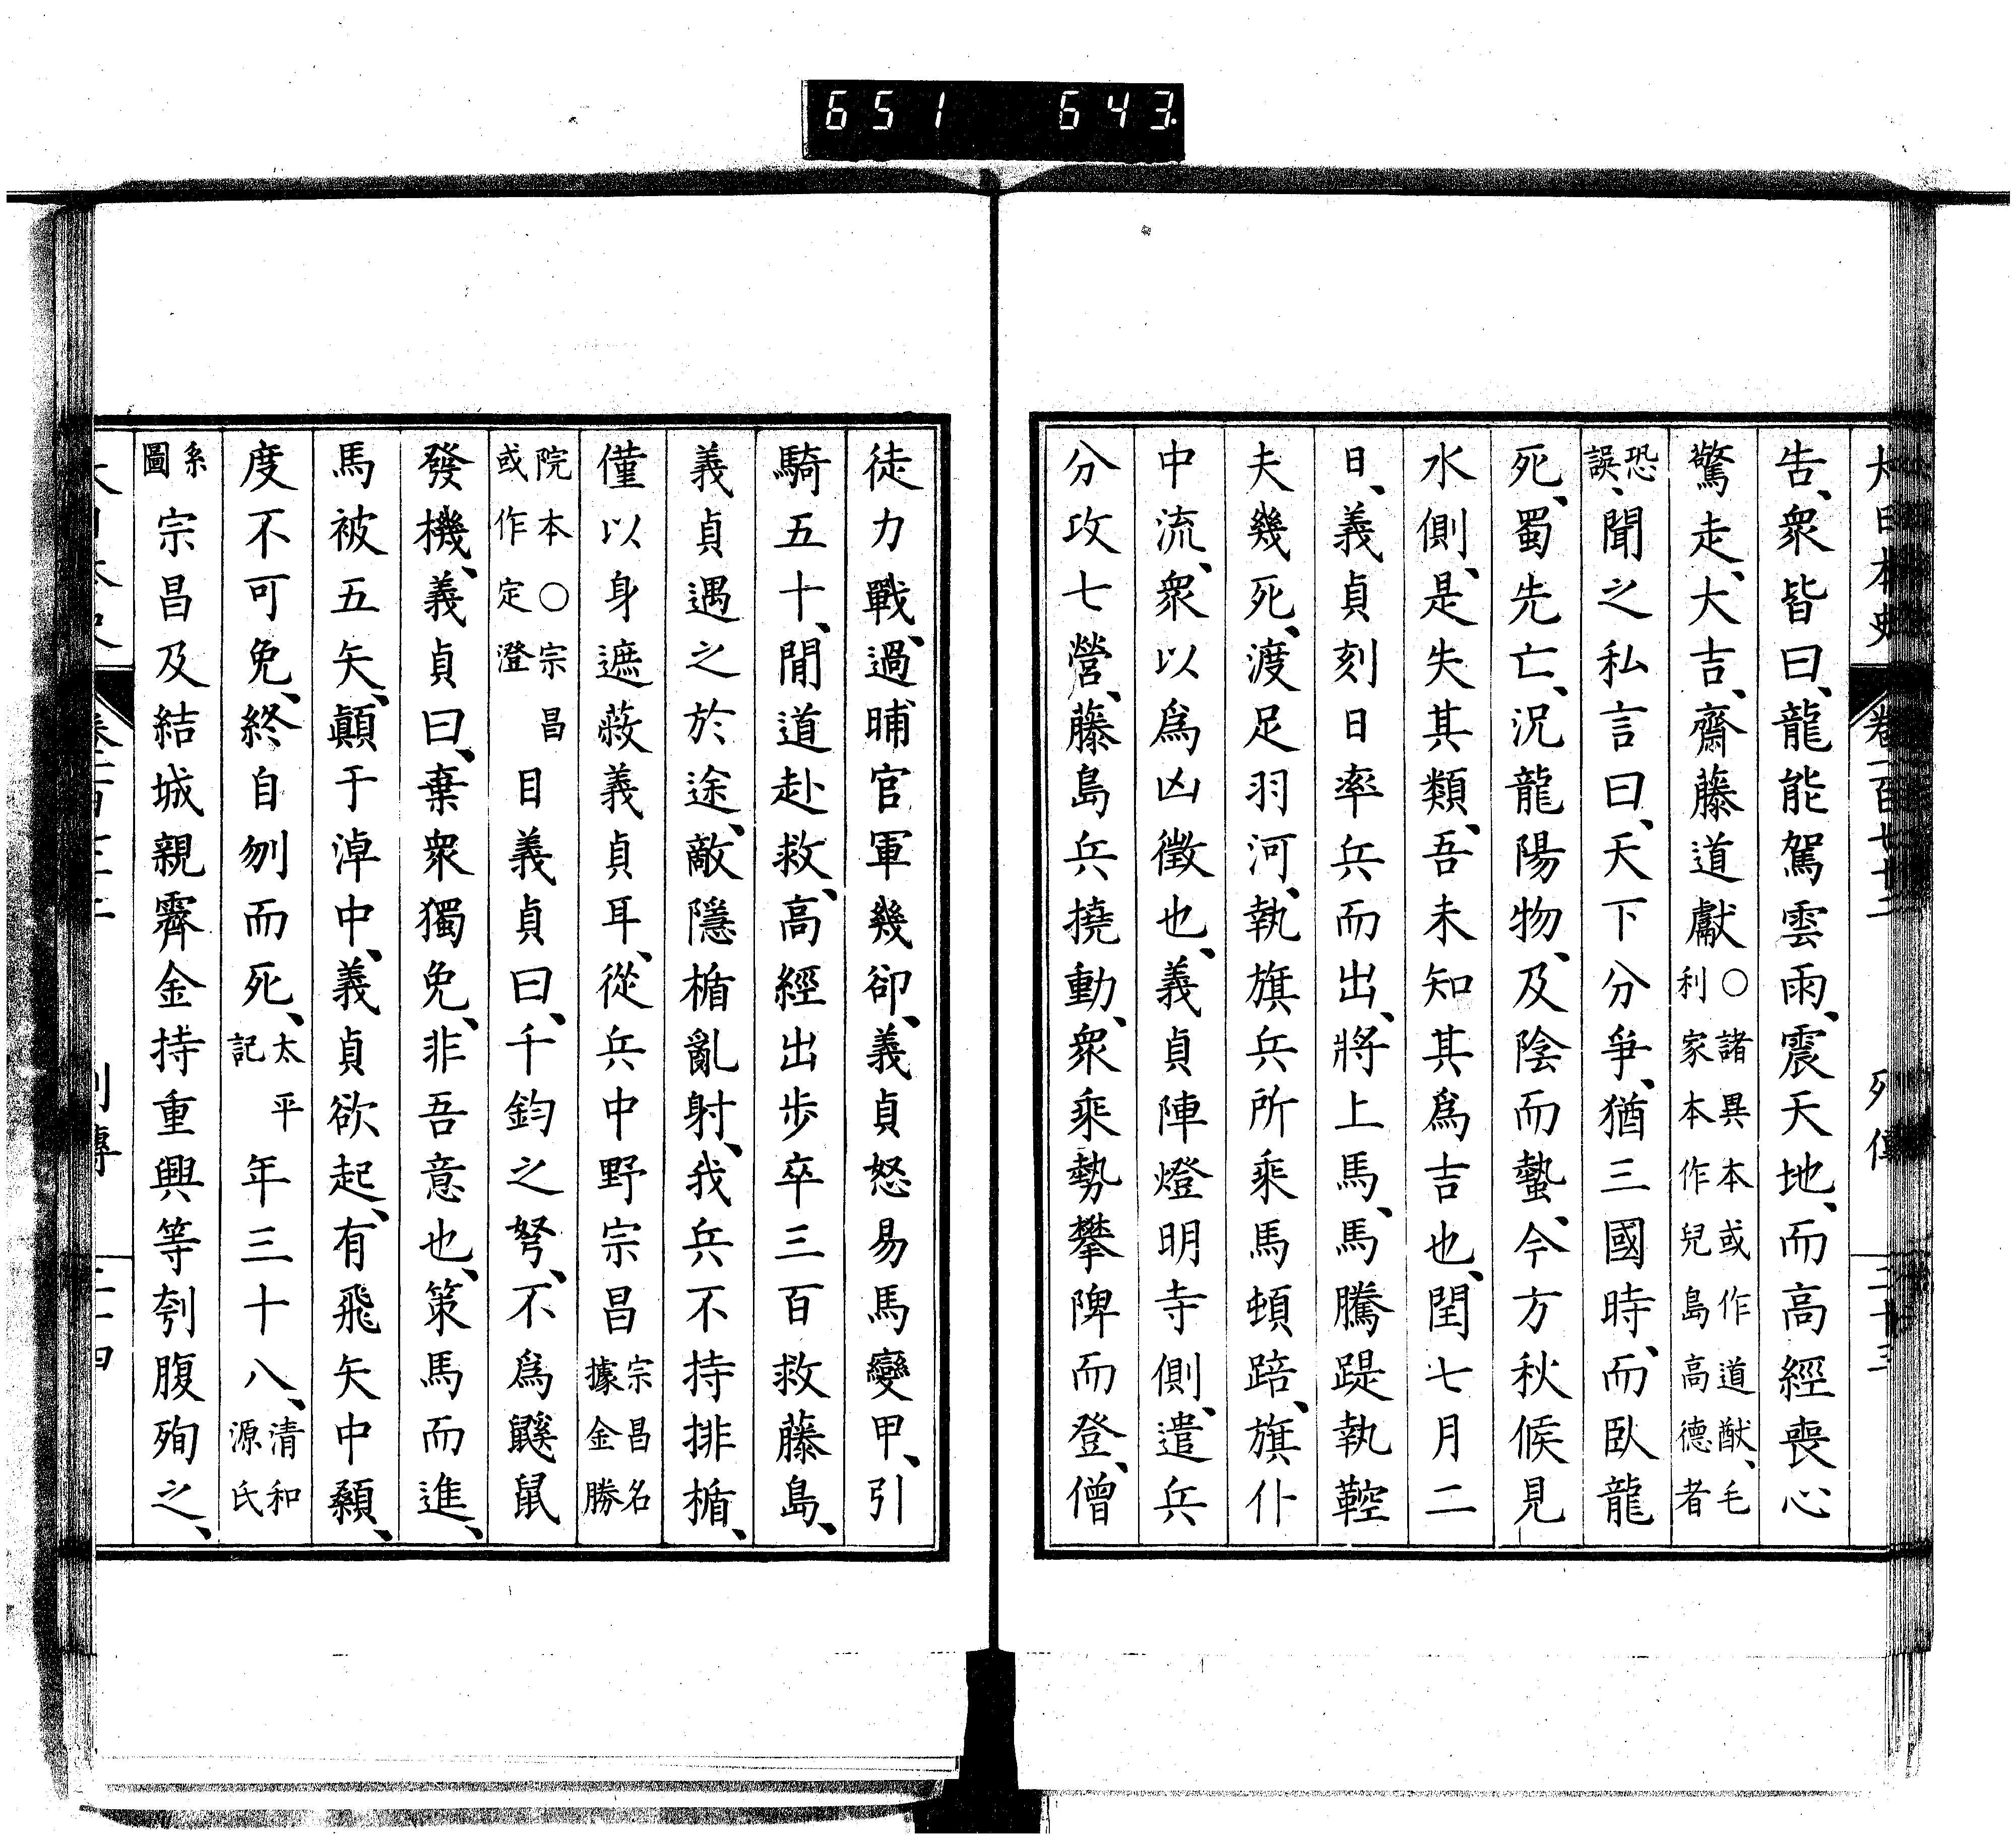 651 643
大日本史 卷一百七十二 列傳 二十三
告、衆皆曰、龍能駕雲雨、震天地、而高經喪心
驚走、大吉、齋藤道獻○諸異本或作道猷、毛利家本作兒島高德者
恐誤、聞之私言曰、天下分爭、猶三國時、而臥龍
死、蜀先亡、況龍陽物、及陰而蟄、今方秋候見
水側、是失其類、吾未知其爲吉也、閏七月二
日、義貞刻日率兵而出、將上馬、馬騰踶執鞚
夫幾死、渡足羽河、執旗兵所乘馬頓踣、旗仆
中流、衆以爲凶徵也、義貞陣燈明寺側、遣兵
分攻七營、藤島兵撓動、衆乘勢攀陴而登、僧
徒力戰、過晡官軍幾卻、義貞怒易馬變甲、引
騎五十、閒道赴救、高經出步卒三百救藤島、
義貞遇之於途、敵隱楯亂射、我兵不持排楯、
僅以身遮蔽義貞耳、從兵中野宗昌宗昌名據金勝
院本○宗昌或作定澄目義貞曰、千鈞之弩、不爲鼷鼠
發機、義貞曰、棄衆獨免、非吾意也、策馬而進、
馬被五矢、顚于淖中、義貞欲起、有飛矢中顙、
度不可免、終自刎而死、太平記年三十八、清和源氏
系圖宗昌及結城親霽金持重興等刳腹殉之、